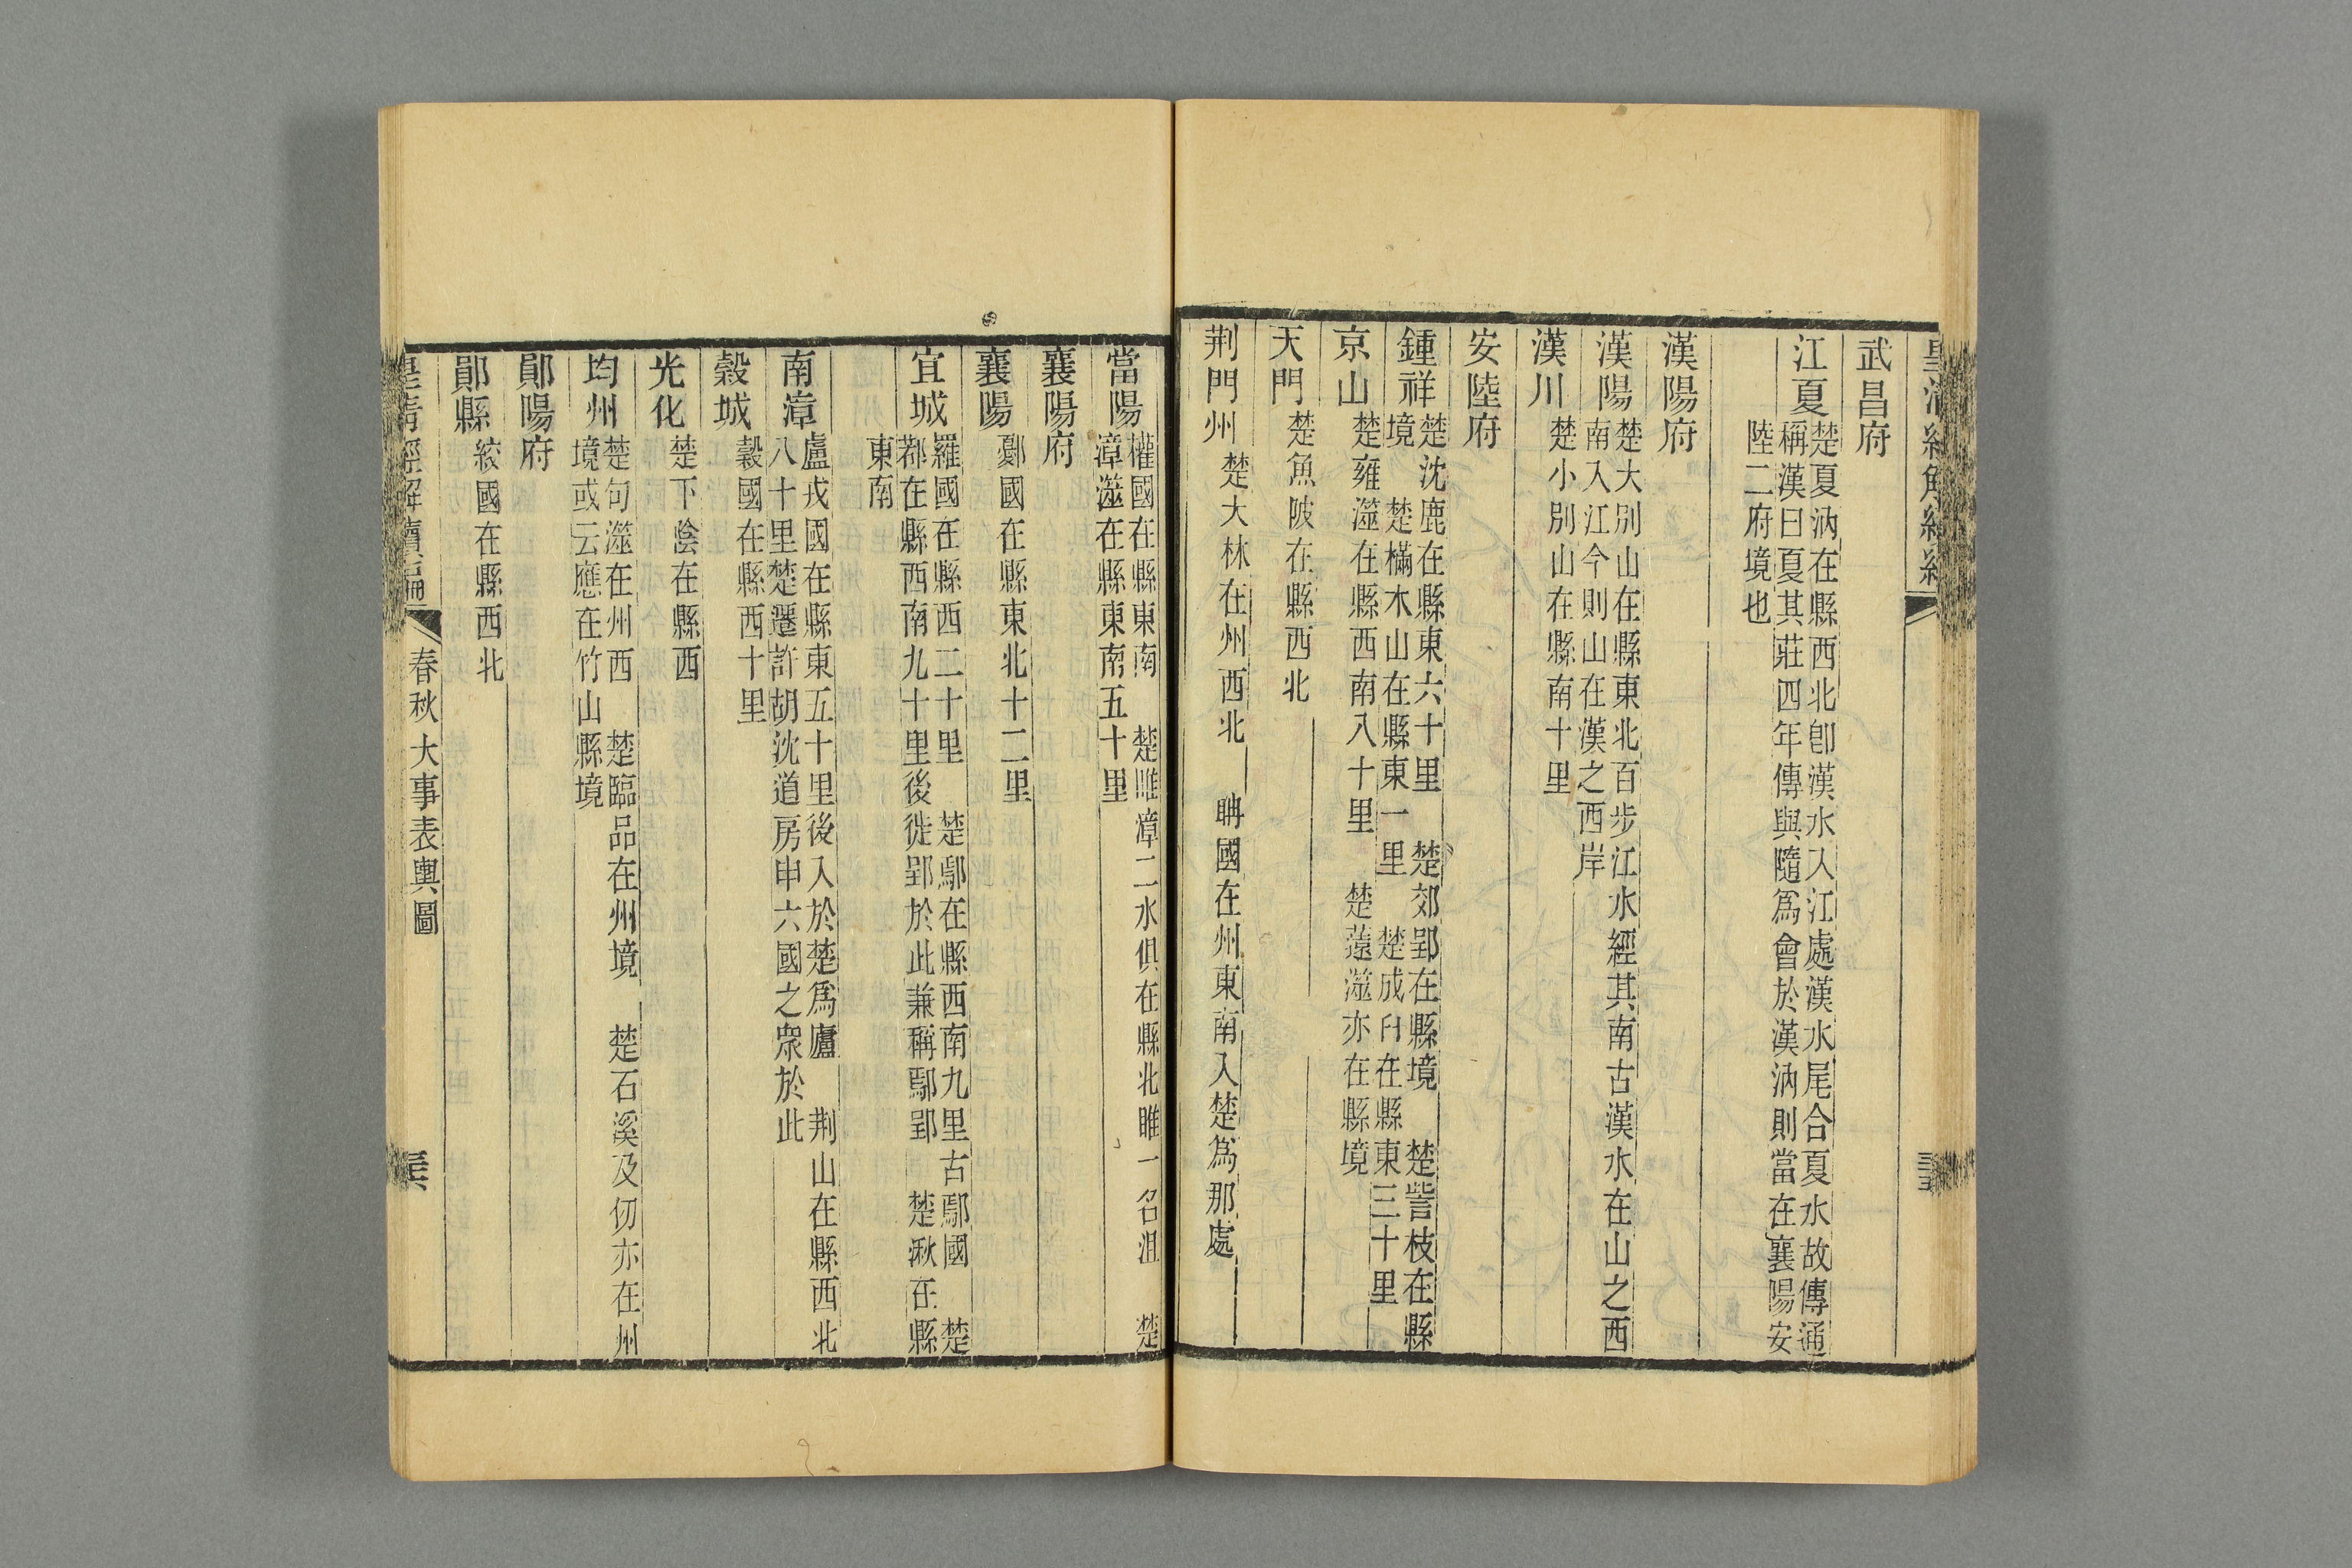 皇清經解續編
武昌府
江夏 楚夏汭在縣西北卽漢水入江處漢水尾合夏水故傳通
稱漢曰夏其莊四年傳與隨爲會於漢汭則當在襄陽安
陸二府境也
漢陽府
漢陽 楚大別山在縣東北百步江水經其南古漢水在山之西
南入江今則山在漢之西岸
漢川 楚小別山在縣南十里
安陸府
鍾祥 楚沈鹿在縣東六十里 楚郊郢在縣境 楚訾枝在縣
境 楚樠木山在縣東一里 楚成臼在縣東三十里
京山 楚雍澨在縣西南八十里 楚薳澨亦在縣境
天門 楚魚陂在縣西北
荆門州 楚大林在州西北 聃國在州東南入楚爲那處
當陽 權國在縣東南 楚雎漳二水俱在縣北雎一名沮 楚
漳澨在縣東南五十里
襄陽府
襄陽 鄾國在縣東北十二里
宜城 羅國在縣西二十里 楚鄢在縣西南九里古鄢國 楚
鄀在縣西南九十里後徙郢於此兼稱鄢郢 楚湫在縣
東南
南漳 盧戎國在縣東五十里後入於楚爲廬 荆山在縣西北
八十里楚遷許胡沈道房申六國之衆於此
穀城 穀國在縣西十里
光化 楚下陰在縣西
均州 楚句澨在州西 楚臨品在州境 楚石溪及仞亦在州
境或云應在竹山縣境
鄖陽府
鄖縣 絞國在縣西北
皇清經解續編 春秋大事表輿圖